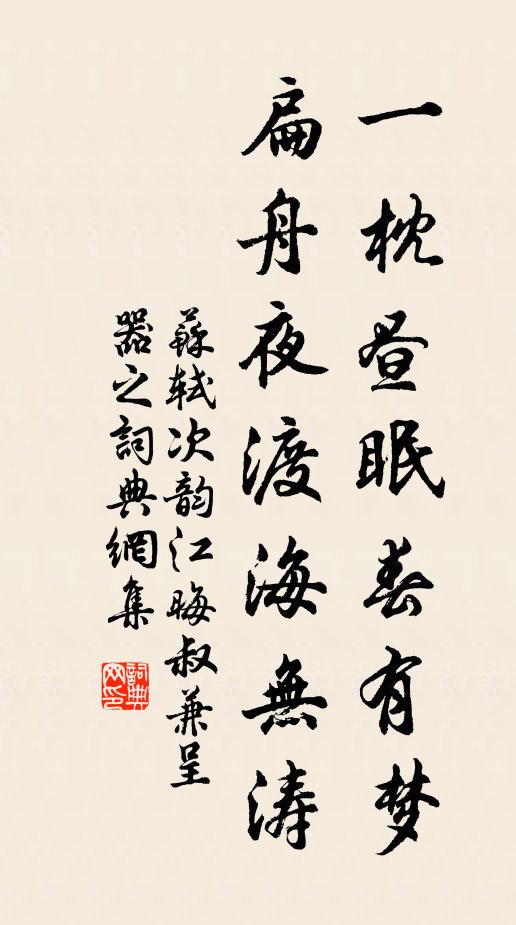 一枕昼眠春有梦
扁舟夜渡海無涛
蘇轼次韵江晦叔兼呈
器之詞典網集
詞典
网印